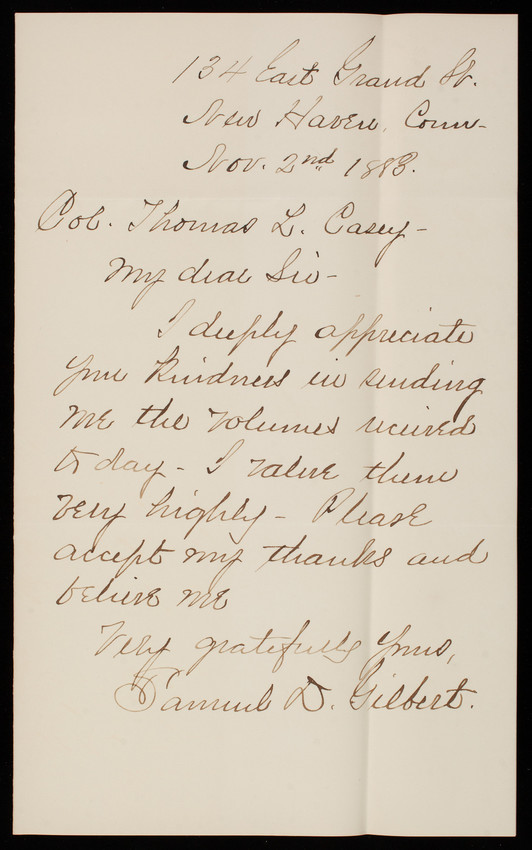 134 East Grand St.
New Haven, Conn-
Nov. 2nd 1883.
Col. Thomas L. Casey-
My dear Sir-
I deeply appreciate
your kindness in sending
me the volumes received
to day - I value them
very highly - Please
accept my thanks and
believe me
Very gratefully yours,
Samuel D. Gilbert.